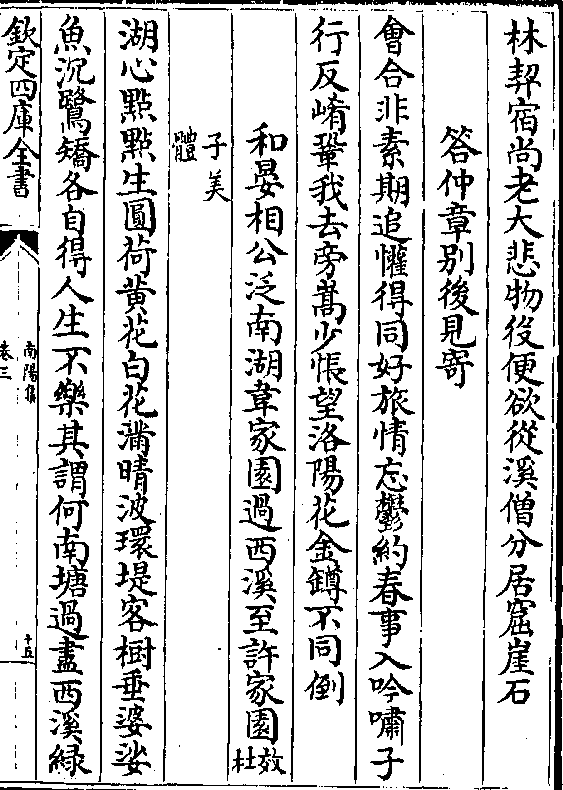 林契宿尚老大悲物役便欲從溪僧分居窟崖石
答仲章別後見寄
㑹合非素期追懽得同好旅情忘鬱約春事入吟嘯子
行反崤鞏我去旁嵩少悵望洛陽花金鐏不同倒
和晏相公泛南湖韋家園過西溪至許家園效杜
子美
體
湖心點點生圓荷黄花白花滿晴波環堤客樹垂婆娑
魚沉鷺矯各自得人生不樂其謂何南塘過盡西溪緑
欽定四庫全書
南陽集
卷三
十五